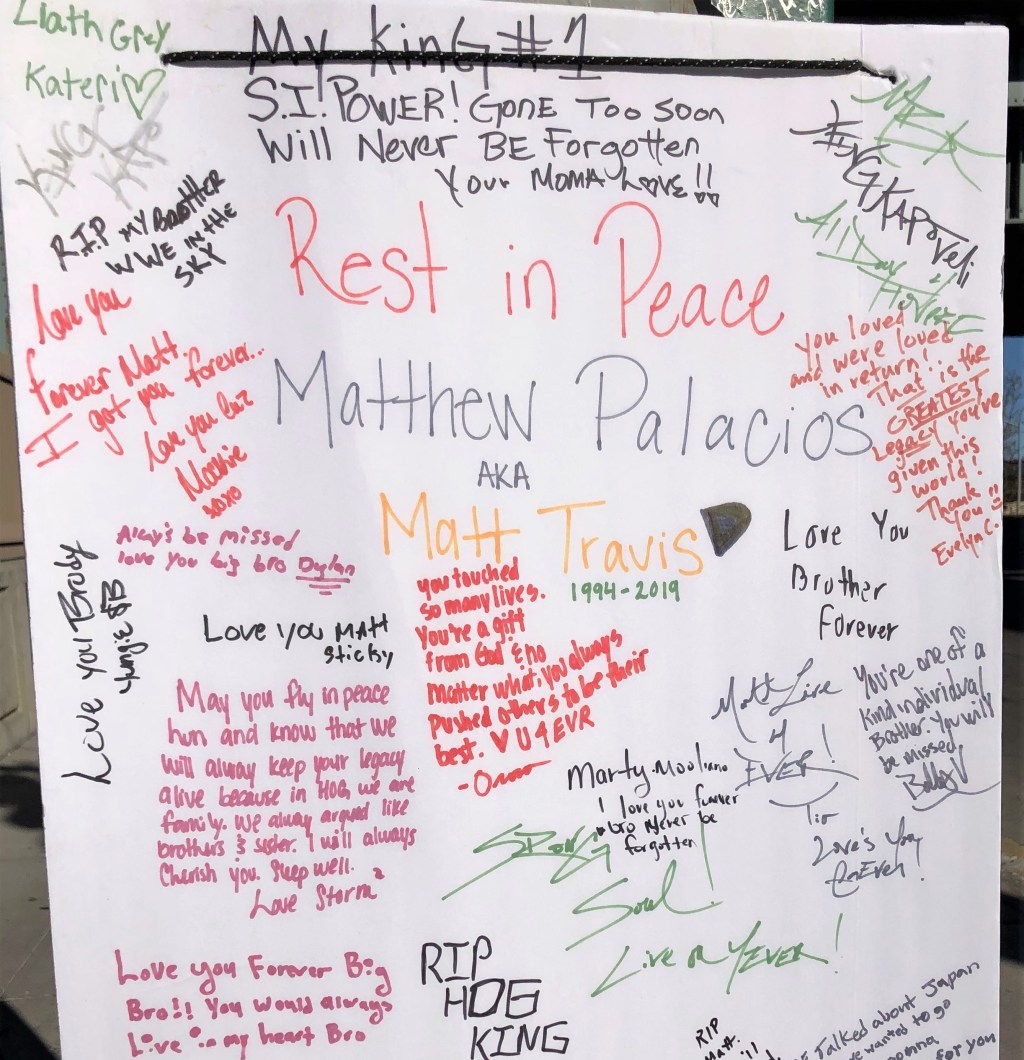 Liath Grey
Kateri♡
KING
KAPO
R.I.P MY BROTHER
W WE IN THE
SKY
My KinG #1
S.I! POWER! GONE Too Soon
Will Never BE Forgotten
Your MOMA Love!!
KING KAPOVELI
All Day
Rest in Peace
Matthew Palacios
AKA
Matt Travis
1994-2019
love you
forever Matt.
I got you forever..
love you
xoxo
You loved
and were loved
in return!
That is the
GREATEST
Legacy you've
given this
world!
Thank
You!!
Evelyn C.
Alway's be missed
love you big bro Dylan
Love your Brody
Yungie $B
Love you MATT
Sticky
you touched
so many lives.
You're a gift
from God & no
matter what, you always
pushed others to be their
best. ♡ U 4 EVR
Love You
Brother
Forever
May you fly in peace
hun and know that we
will alway keep your legacy
alive because in HOG, we are
family. We alway argued like
brothers & sister. I will always
Cherish you. Sleep well.
Love Storm
Matt Live
4
EVER!
Tio
Love's You
You're one of a
kind individual
Brother. You will
be missed
Bobby
Marty.Mooliano
I love you furever
bro Never be
forgotten
Strong
Soul!
Live on 4EVER!
Love you Forever Big
Bro!! You would always
Live in my heart Bro
RIP
HOG
KING
RIP
Matt.
Talked about Japan
we wanted to go
gonna
for you